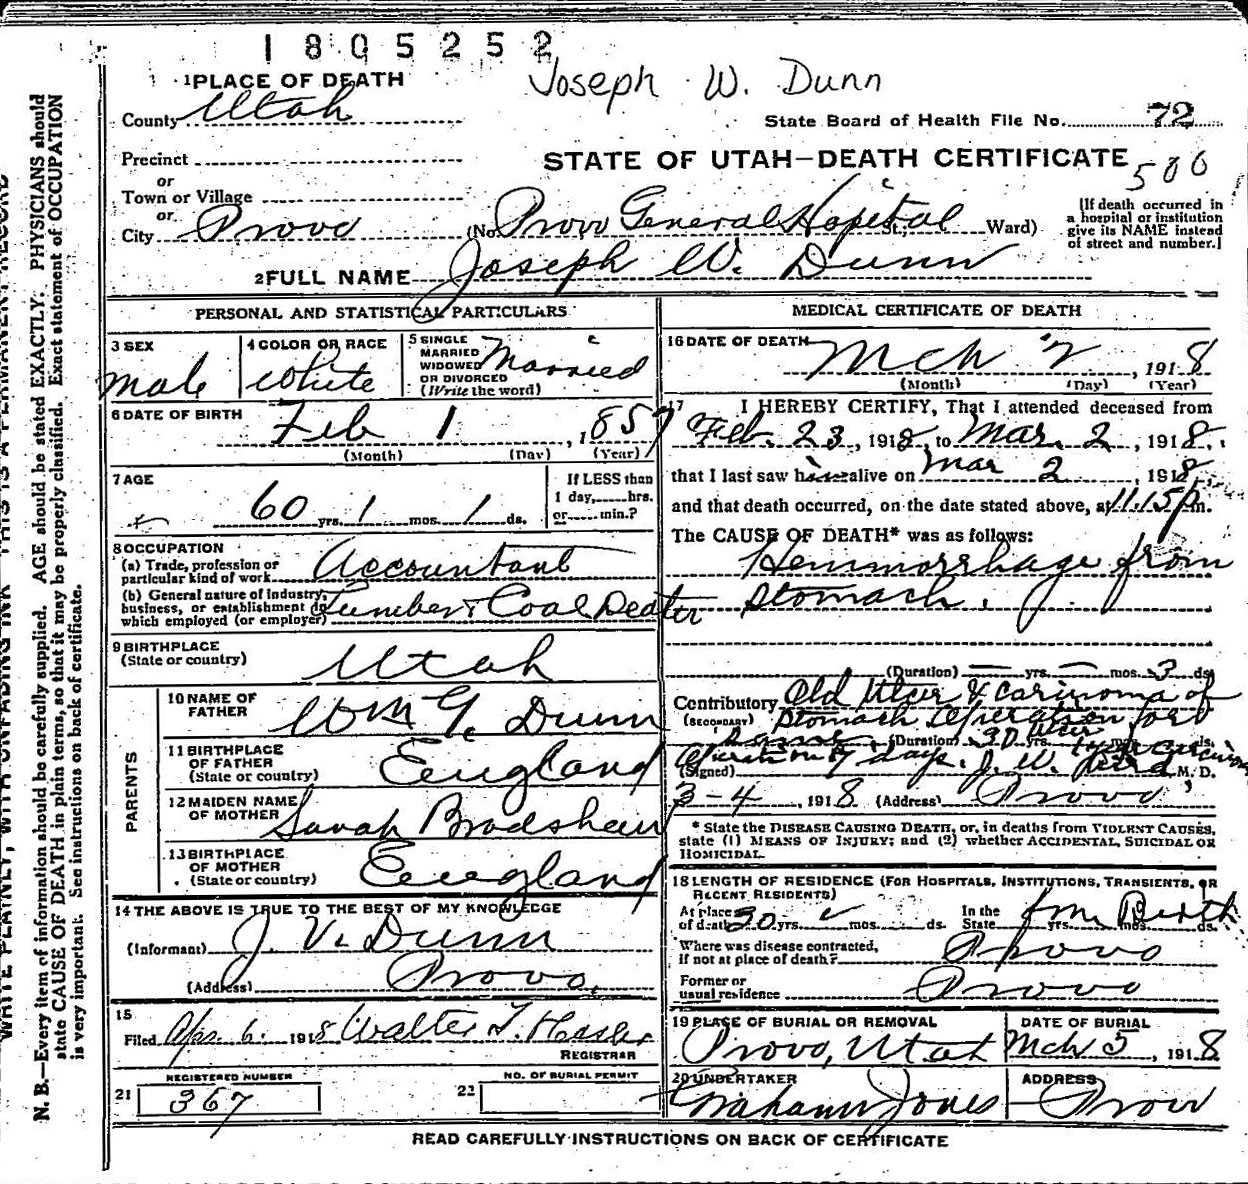 1805252
Joseph W. Dunn
1 PLACE OF DEATH
County Utah
State Board of Health File No. 72
Precinct
STATE OF UTAH—DEATH CERTIFICATE
500
or
Town or Village
or
City Provo (No. Provo General Hopital St.; Ward)
[If death occurred in
a hospital or institution
give its NAME instead
of street and number.]
2 FULL NAME Joseph W. Dunn
PERSONAL AND STATISTICAL PARTICULARS
3 SEX
male
4 COLOR OR RACE
White
5 SINGLE
MARRIED
WIDOWED
OR DIVORCED
(Write the word)
Married
6 DATE OF BIRTH
Feb 1, 1857
(Month) (Day) (Year)
7 AGE
60 yrs. 1 mos. 1 ds.
If LESS than
1 day, hrs.
or min.?
8 OCCUPATION
(a) Trade, profession or
particular kind of work Accountant
(b) General nature of industry,
business, or establishment in
which employed (or employer) Lumber & Coal Dealer
9 BIRTHPLACE
(State or country) Utah
PARENTS
10 NAME OF
FATHER Wm G. Dunn
11 BIRTHPLACE
OF FATHER
(State or country) England
12 MAIDEN NAME
OF MOTHER Sarah Bradshaw
13 BIRTHPLACE
OF MOTHER
(State or country) England
14 THE ABOVE IS TRUE TO THE BEST OF MY KNOWLEDGE
(Informant) J. V. Dunn
(Address) Provo.
15
Filed Apr. 6. 1918 Walter T. Hasler
REGISTRAR
REGISTERED NUMBER
21 367
NO. OF BURIAL PERMIT
22
MEDICAL CERTIFICATE OF DEATH
16 DATE OF DEATH
Mch 2, 1918
(Month) (Day) (Year)
17 I HEREBY CERTIFY, That I attended deceased from
Feb. 23, 1918, to Mar. 2, 1918.
that I last saw him alive on Mar 2, 1918,
and that death occurred, on the date stated above, at 11.15 p.m.
The CAUSE OF DEATH* was as follows:
Hemmorrhage from
Stomach.
(Duration) — yrs. — mos. 3 ds.
Contributory Old Ulcer & carinoma of
(SECONDARY) Stomach operation for
same. (Duration) 30 yrs. Ulcer
Operation 7 days.
(Signed) J. W. M. D.
3-4, 1918 (Address) Provo
* State the DISEASE CAUSING DEATH, or, in deaths from VIOLENT CAUSES,
state (1) MEANS OF INJURY; and (2) whether ACCIDENTAL, SUICIDAL OR
HOMICIDAL.
18 LENGTH OF RESIDENCE (FOR HOSPITALS, INSTITUTIONS, TRANSIENTS, OR
RECENT RESIDENTS)
At place
of death 30 yrs. mos. ds.
In the
State yrs. mos. ds. from Birth
Where was disease contracted,
if not at place of death? Provo
Former or
usual residence Provo
19 PLACE OF BURIAL OR REMOVAL
Provo, Utah
DATE OF BURIAL
Mch 5, 1918
20 UNDERTAKER
Jones
ADDRESS
Provo
READ CAREFULLY INSTRUCTIONS ON BACK OF CERTIFICATE
N. B.—Every item of information should be carefully supplied. AGE should be stated EXACTLY. PHYSICIANS should
state CAUSE OF DEATH in plain terms, so that it may be properly classified. Exact statement of OCCUPATION
is very important. See instructions on back of certificate.